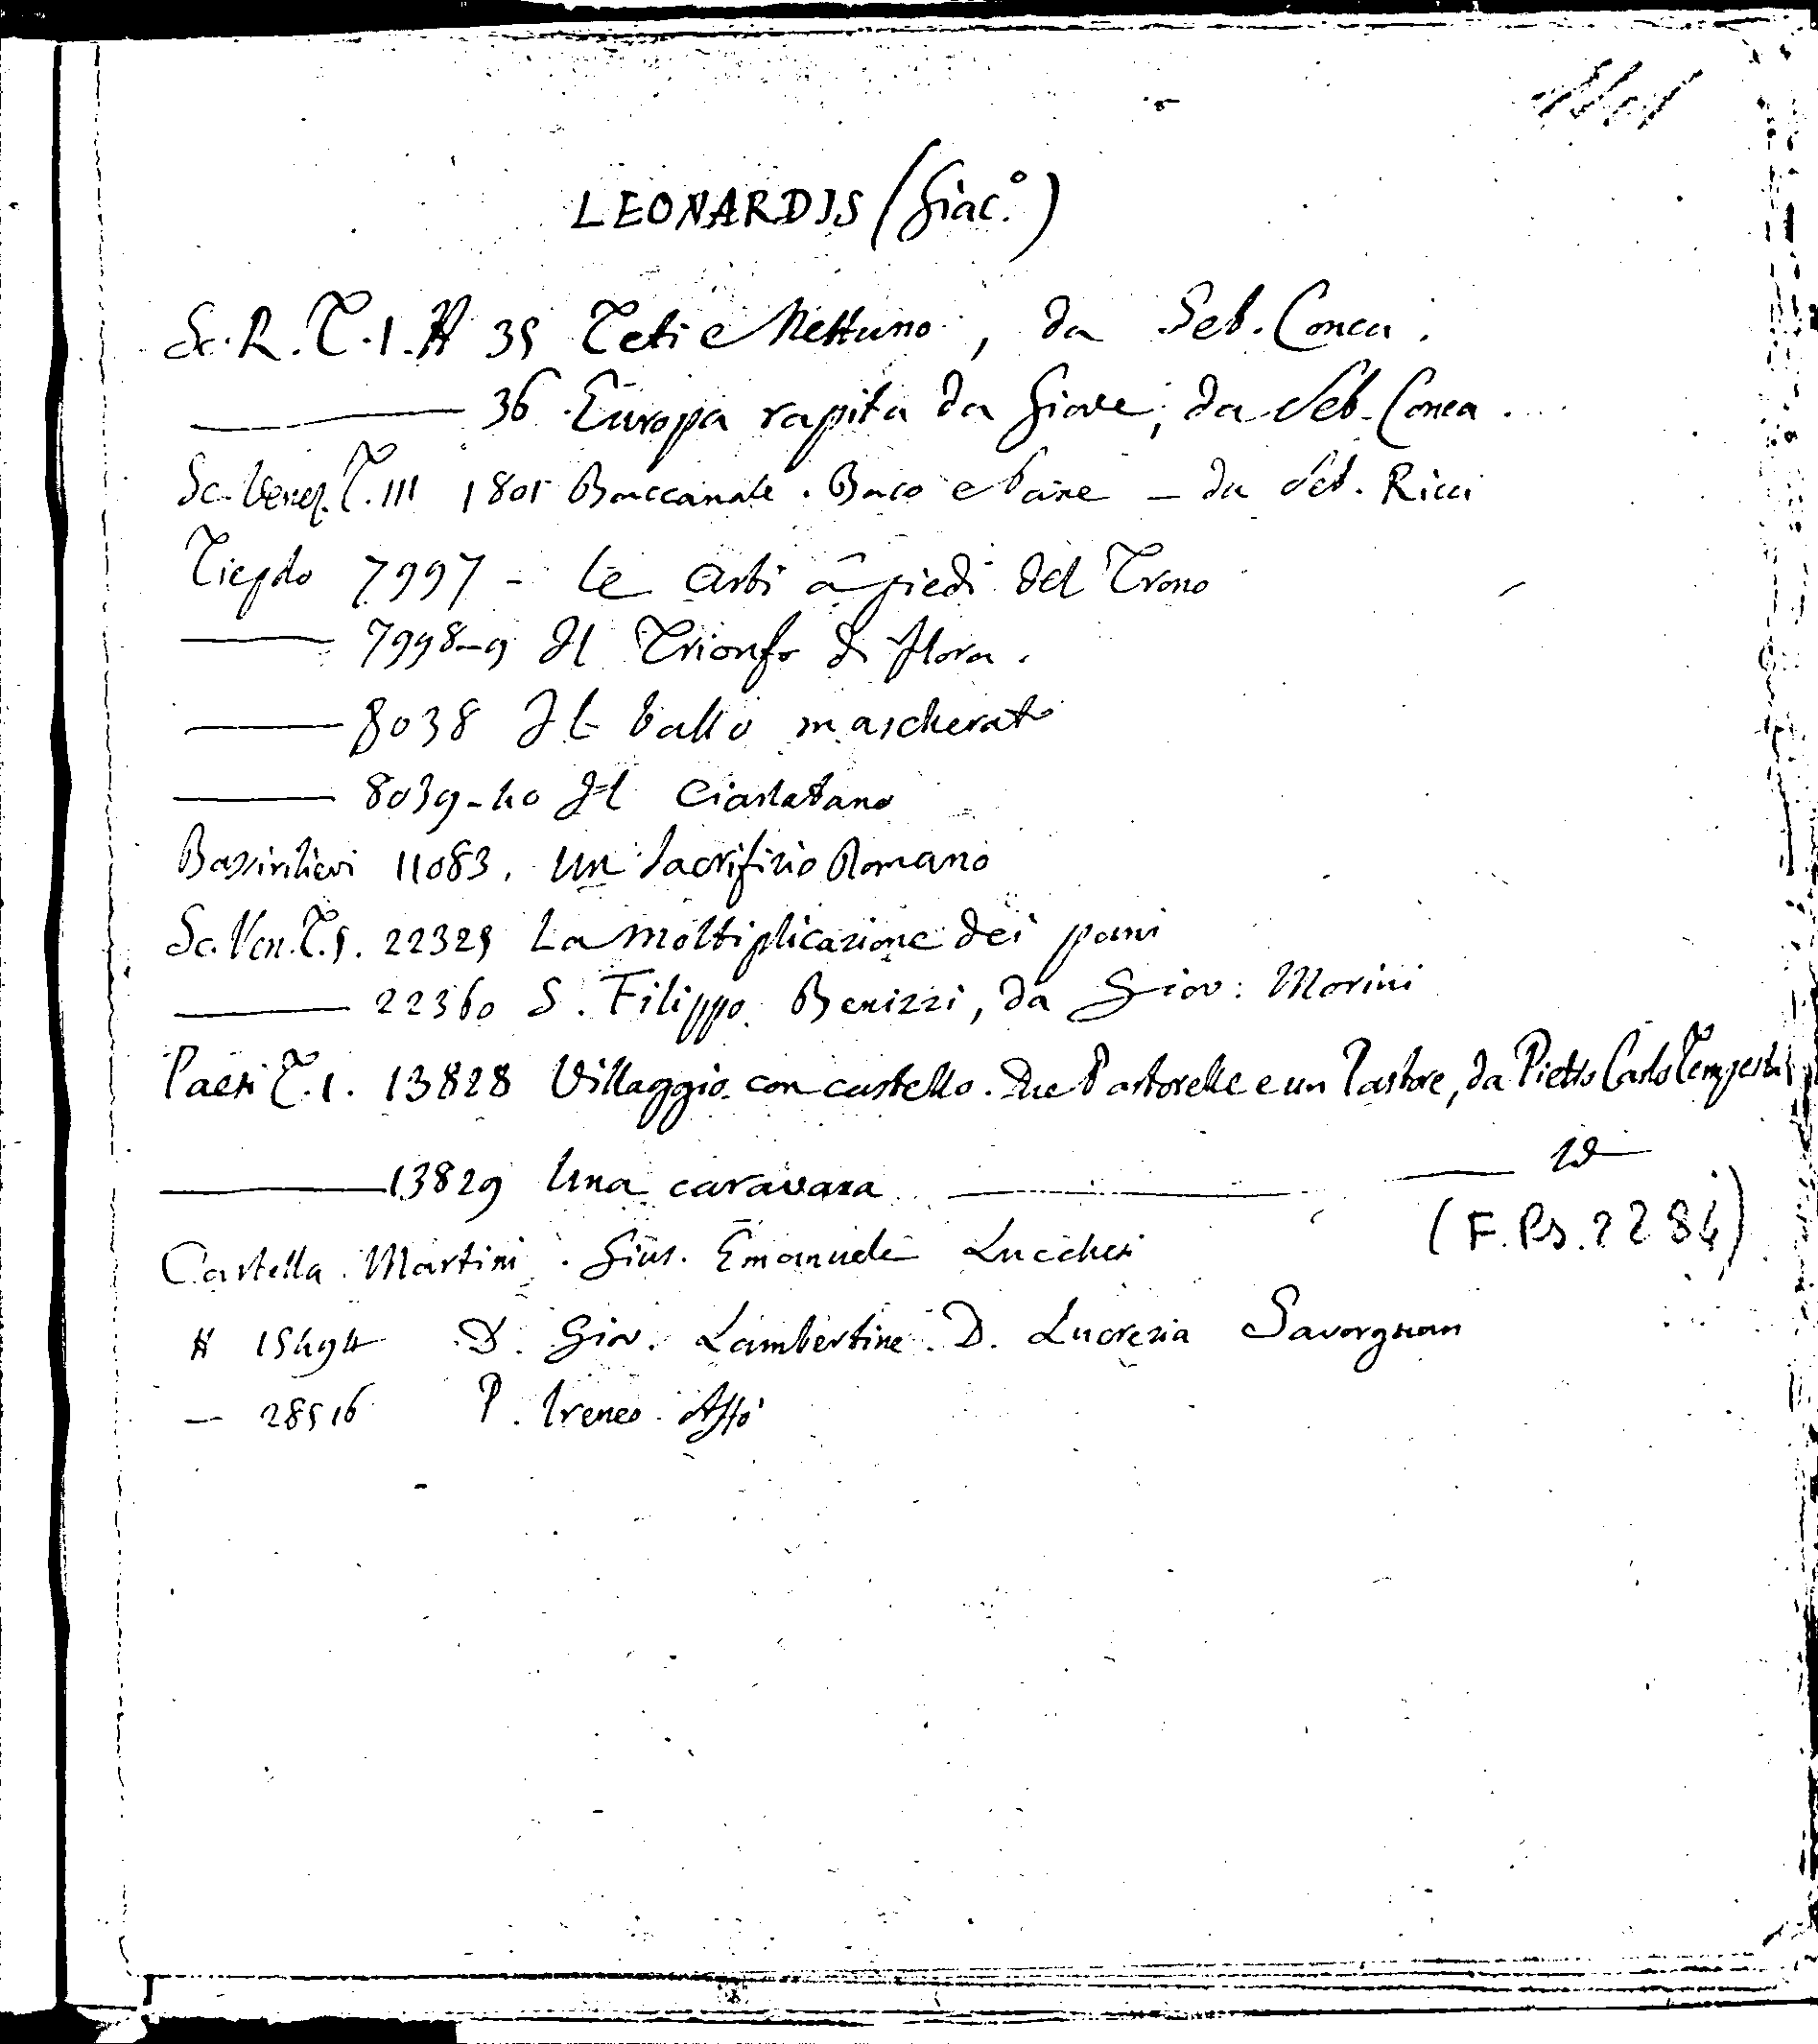 LEONARDIS (Giac.º)
Sc. R. T. I. # 35 Teti e Nettuno, da Seb. Conca.
——— 36 Europa rapita da Giove, da Seb. Conca.
Sc. Venez. T. III 1801 Baccanale. Baco e Pane — da Seb. Ricci
Tiepolo 7997 - Le Arti a piedi del Trono
——— 7998-9 Il Trionfo di Flora.
——— 8038 Il ballo mascherato
——— 8039-40 Il Ciarlatano
Bassirilievi 11083. Un Sacrifizio Romano
Sc. Ven. T. 5. 22325 La moltiplicazione dei pani
——— 22360 S. Filippo Benizzi, da Giov: Morini
Paesi T. 1. 13828 Villaggio con castello. Due Pastorelle e un Pastore, da Pietro Carlo Tempesta
——— 13829 Una caravana ——— ——— id
(F. Ps. 2284)
Cartella Martini. Gius. Emanuele Lucchesi
# 15494 D. Giov. Lambertine. D. Lucrezia Savorgnan
— 28516 P. Ireneo Affò